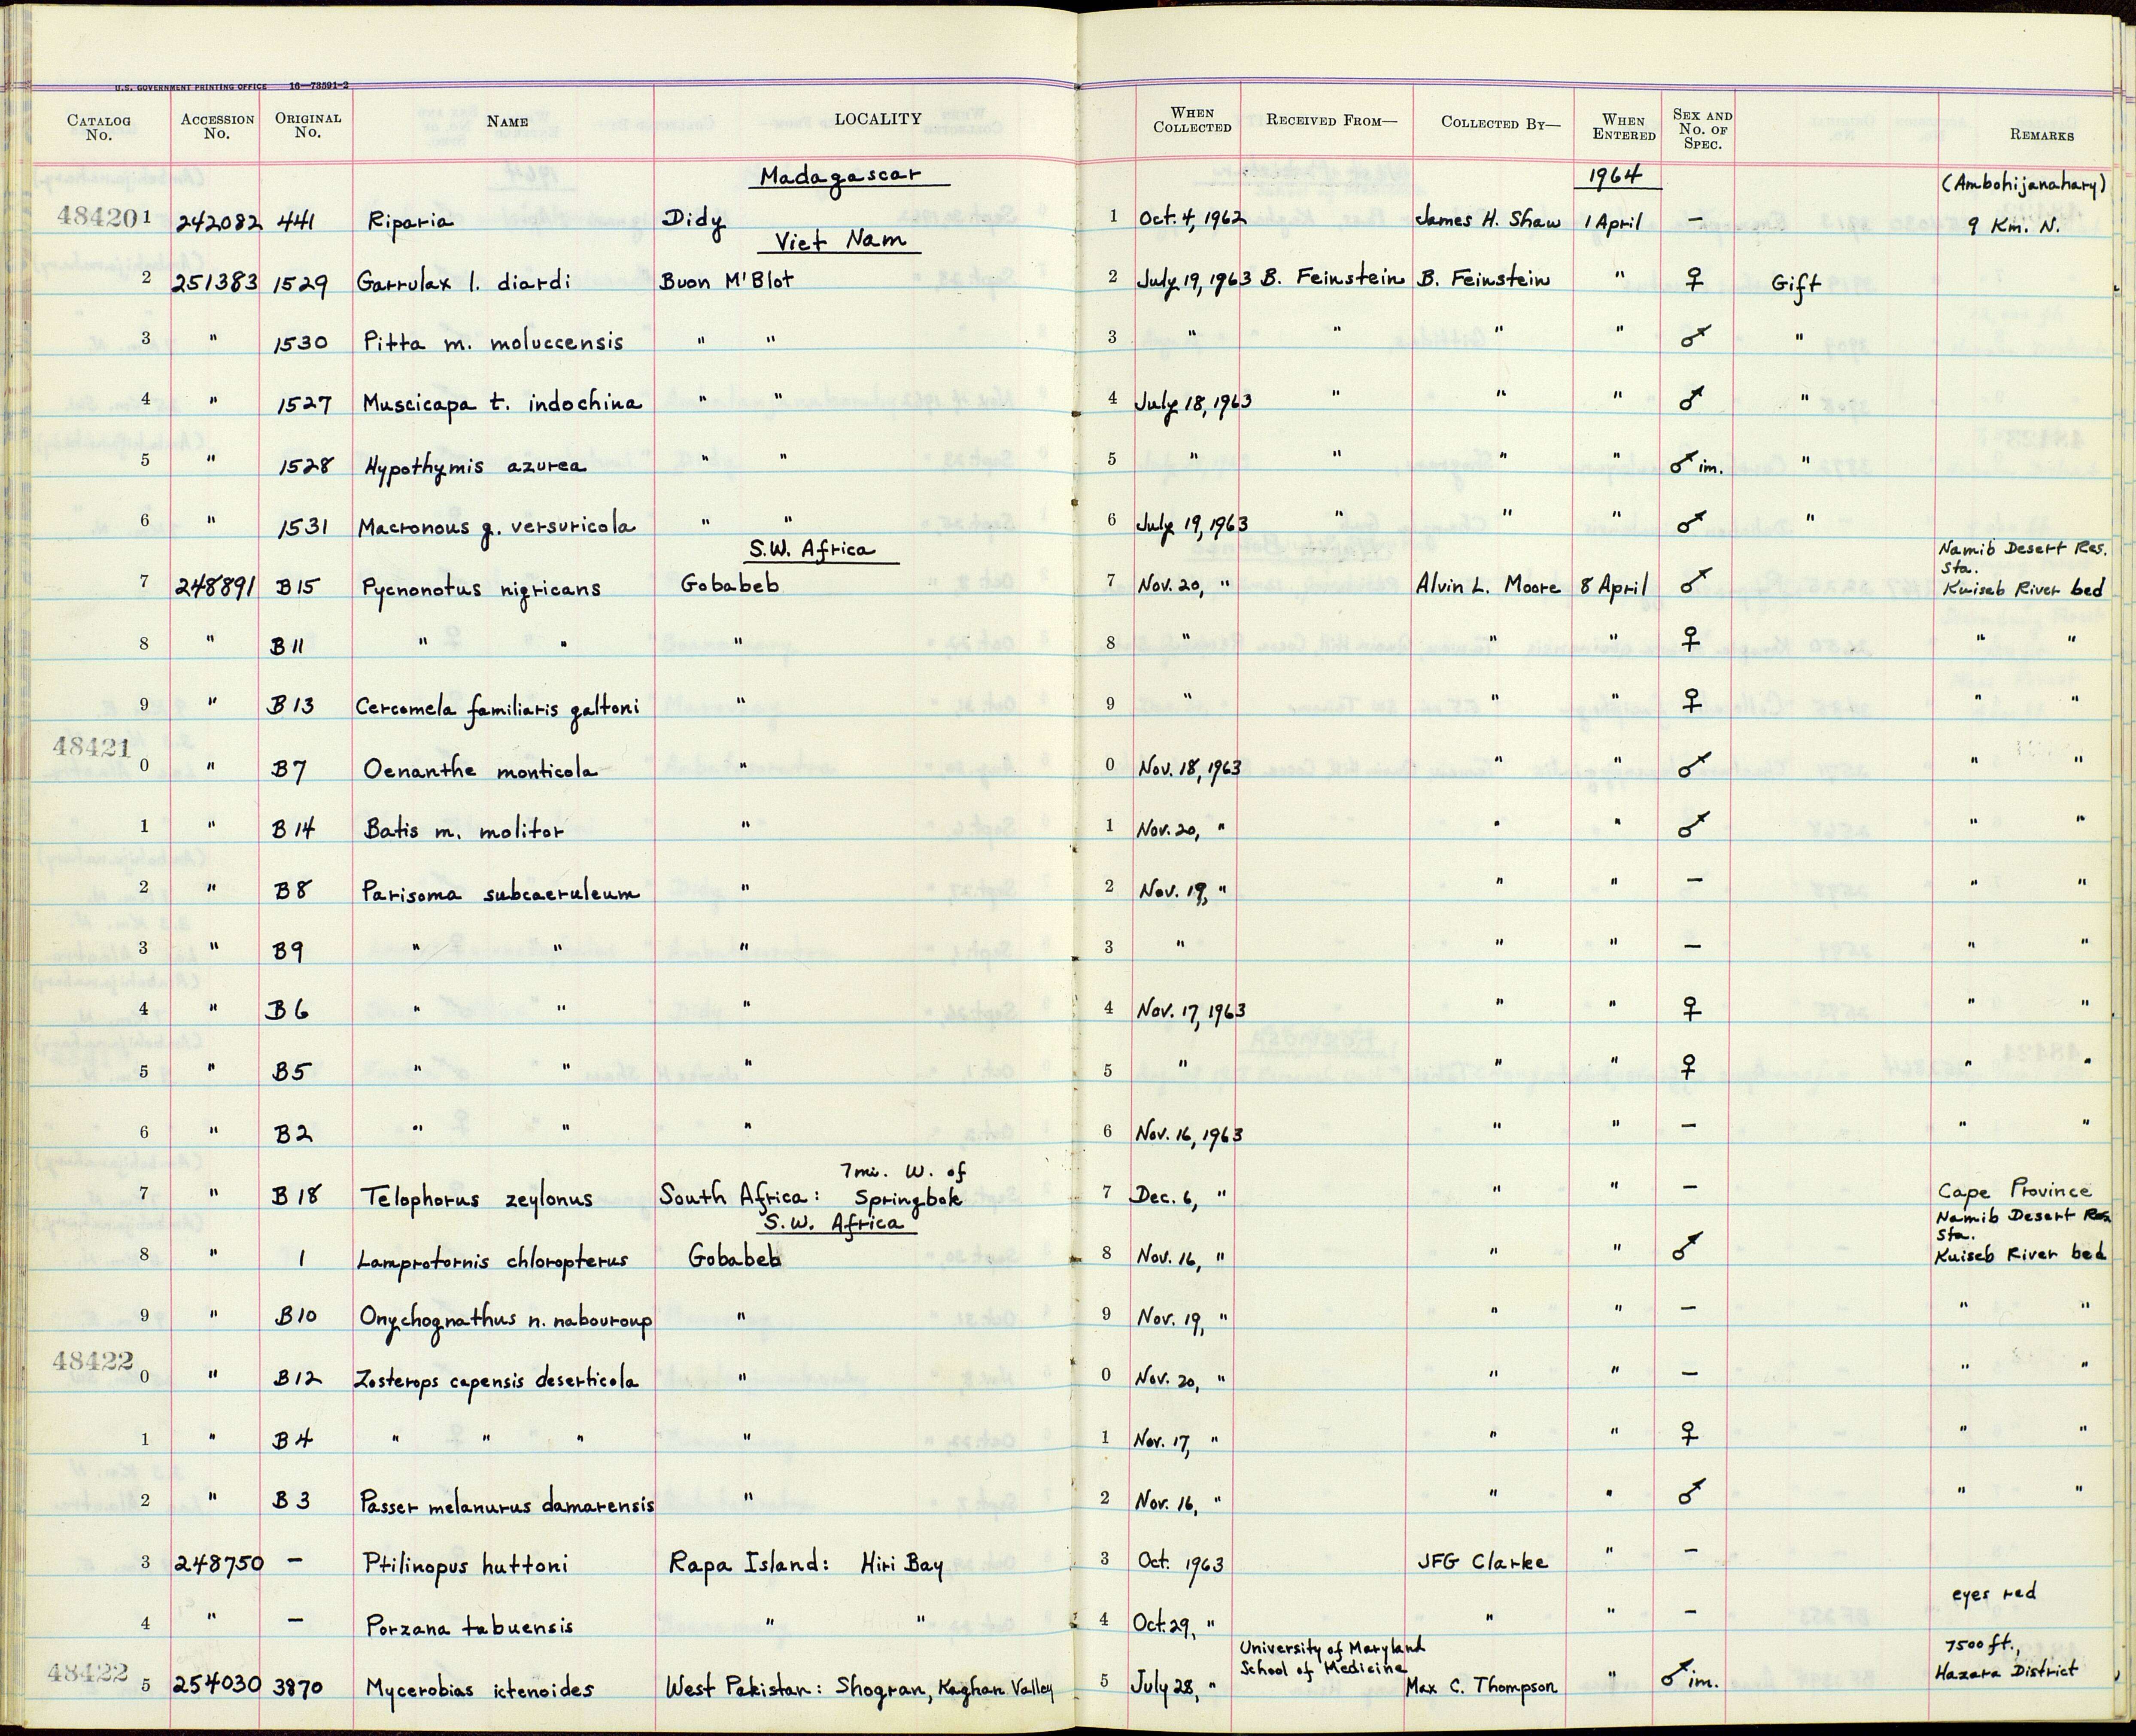 U.S. GOVERNMENT PRINTING OFFICE 16—73591-2
CATALOG No. ACCESSION No. ORIGINAL No. NAME LOCALITY WHEN COLLECTED RECEIVED FROM— COLLECTED BY— WHEN ENTERED SEX AND No. OF SPEC. REMARKS
Madagascar 1964 (Ambohijanahary)
48420 1 242082 441 Riparia Didy 1 Oct. 4, 1962 James H. Shaw 1 April — 9 Km. N.
Viet Nam
2 251383 1529 Garrulax l. diardi Buon M'Blot 2 July 19, 1963 B. Feinstein B. Feinstein " ♀ Gift
3 " 1530 Pitta m. moluccensis " " 3 " " " " ♂ "
4 " 1527 Muscicapa t. indochina " " 4 July 18, 1963 " " " ♂ "
5 " 1528 Hypothymis azurea " " 5 " " " " ♂ im. "
6 " 1531 Macronous g. versuricola " " 6 July 19, 1963 " " " ♂ "
S.W. Africa Namib Desert Res. Sta.
7 248891 B15 Pycnonotus nigricans Gobabeb 7 Nov. 20, " Alvin L. Moore 8 April ♂ Kuiseb River bed
8 " B11 " " " 8 " " " ♀ " "
9 " B13 Cercomela familiaris galtoni " 9 " " " ♀ " "
48421 0 " B7 Oenanthe monticola " 0 Nov. 18, 1963 " " ♂ " "
1 " B14 Batis m. molitor " 1 Nov. 20, " " " ♂ " "
2 " B8 Parisoma subcaeruleum " 2 Nov. 19, " " " — " "
3 " B9 " " " 3 " " " — " "
4 " B6 " " " 4 Nov. 17, 1963 " " ♀ " "
5 " B5 " " " 5 " " " ♀ " "
6 " B2 " " " 6 Nov. 16, 1963 " " — " "
7 mi. W. of
7 " B18 Telophorus zeylonus South Africa: Springbok 7 Dec. 6, " " " — Cape Province
S.W. Africa Namib Desert Res. Sta.
8 " 1 Lamprotornis chloropterus Gobabeb 8 Nov. 16, " " " ♂ Kuiseb River bed
9 " B10 Onychognathus n. nabouroup " 9 Nov. 19, " " " — " "
48422 0 " B12 Zosterops capensis deserticola " 0 Nov. 20, " " " — " "
1 " B4 " " " " 1 Nov. 17, " " " ♀ " "
2 " B3 Passer melanurus damarensis " 2 Nov. 16, " " " ♂ " "
3 248750 — Ptilinopus huttoni Rapa Island: Hiri Bay 3 Oct. 1963 JFG Clarke " —
4 " — Porzana tabuensis " " 4 Oct. 29, " " " — eyes red
University of Maryland School of Medicine 7500 ft.,
48422 5 254030 3870 Mycerobias ictenoides West Pakistan: Shogran, Kaghan Valley 5 July 28, " Max C. Thompson " ♂ im. Hazara District